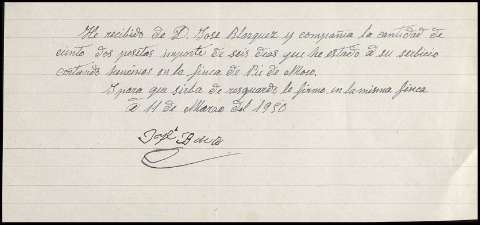 He recibido de D. Jose Blazquez y compañia la cantidad de
ciento dos pesetas importe de seis dias que he estado a su serbicio
cortando hencinas en la finca de Pie de Moro.
I para que sirba de resguardo lo firmo en la misma finca
a 11 de Marzo del 1950
José